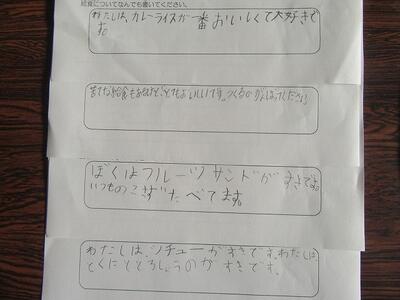 給食についてなんでも書いてください。
わたしは、カレーライスが一番おいしくて大好きで
す。
苦手な給食もあるけど、とてもおいしいです。つくるのがんばってください
ぼくはフルーツサンドがすきです。
いつものこさずたべてます。
わたしは、シチューがすきです。わたしは、
とくにとうもろこしのがすきです。